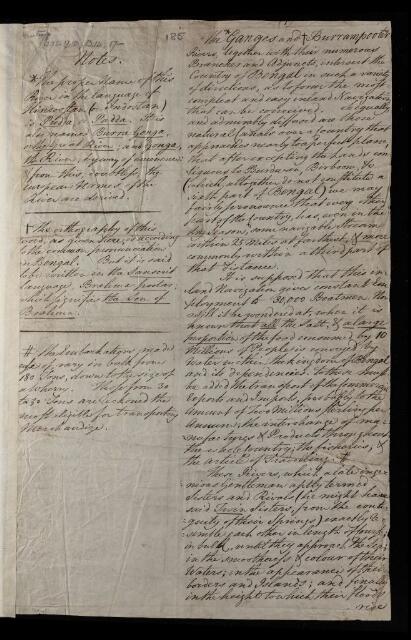 185
Notes.
* The proper name of this
River in the language of
Hindoostan (or Indostan)
is Padda. It is
also named Burra Gonga,
or the great River; and Gonga,
the River, by way of eminence;
& from this, doubtless, the
European Names of the
River are derived.
† The orthography of this
word, as given here, is according
to the common pronunciation
in Bengal. But it is said
to be written in the Sanscrit
language, Brahma-pootar;
which signifies the Son of
Brahma.
# The Embarkations made
use of vary in bulk from
180 Tons, down to the size of
a wherry. Those from 30
to 50 tons are reckoned the
most eligible for transporting
Merchandize.
The *Ganges and †Burrampooter
Rivers, together with their numerous
Branches and Adjuncts, intersect the
Country of Bengal in such a variety
of directions, as to form the most
compleat and easy inland Navigation
that can be conceived. So equally
and admirably diffused are those
natural Canals over a Country that
approaches nearly to a perfect plane,
that after excepting the Lands con-
tiguous to Burdwan, Birboom, &c
(which altogether do not constitute a
sixth part of Bengal) we may
fairly pronounce, that every other
part of the Country, has, even in the
dry season, some navigable Stream
within 25 Miles at farthest; & more
commonly within a third part of
that Distance.
It is supposed that this in-
land Navigation gives constant Em-
ployment to 30,000 Boatmen. Nor
will it be wondered at, when it is
known that all the Salt, & a large
proportion of the food consumed by 10
Millions of People is conveyed by
Water within the kingdom of Bengal
and its dependencies. To these must
be added the transport of the Commercial
Exports and Imports, probably to the
Amount of two Millions Sterling per
Annum; the interchange of ma-
nufactures & Products throughout
the whole Country; the fisheries; &
the article of Travelling. #
These Rivers, which a late inge-
nious Gentleman aptly termed
Sisters and Rivals (he might have
said Twin Sisters, from the conti-
guity of their Springs) exactly re-
semble each other in length of Course;
in bulk, until they approach the Sea;
in the smoothness & colour of their
Waters; in the appearance of their
borders and Islands; and finally
in the height to which their floods
rise